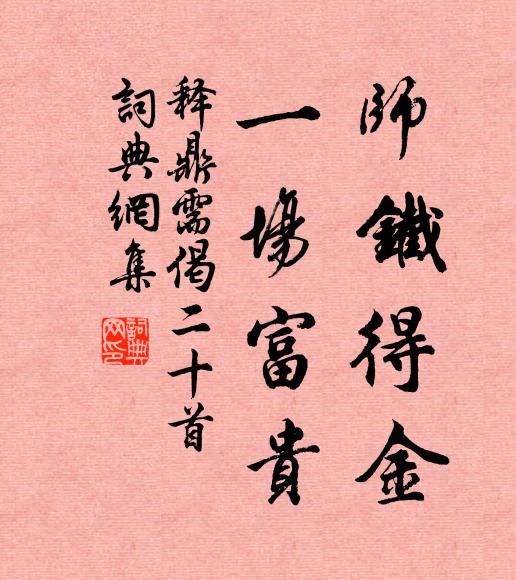 師鐵得金
一場富貴
释鼎需偈二十首
詞典網集
詞典網印